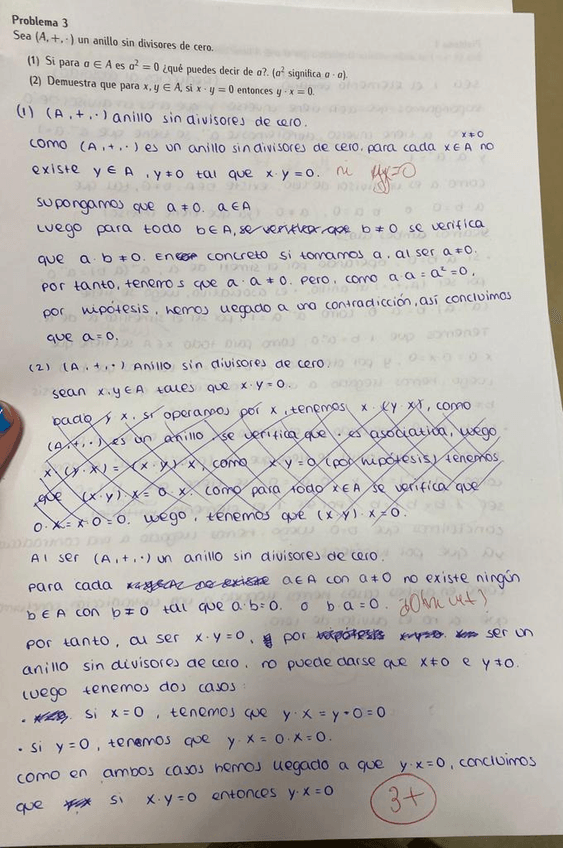 Problema 3
Sea (A, +, ·) un anillo sin divisores de cero.
(1) Si para a ∈ A es a² = 0 ¿qué puedes decir de a?. (a² significa a · a).
(2) Demuestra que para x, y ∈ A, si x · y = 0 entonces y · x = 0.
(1) (A, +, ·) anillo sin divisores de cero.
como (A, +, ·) es un anillo sin divisores de cero. para cada x ∈ A x≠0 no
existe y ∈ A, y ≠ 0 tal que x · y = 0. ni yx=0
supongamos que a ≠ 0. a ∈ A
Luego para todo b ∈ A, se verifica que b ≠ 0 se verifica
que a · b ≠ 0. En concreto si tomamos a, al ser a ≠ 0.
Por tanto, tenemos que a · a ≠ 0. Pero, como a · a = a² = 0,
por hipótesis, hemos llegado a una contradicción, así concluimos
que a = 0.
(2) (A, +, ·) Anillo sin divisores de cero.
sean x, y ∈ A tales que x · y = 0.
Dado y x, si operamos por x, tenemos x · (y x), como
(A, +, ·) es un anillo se verifica que · es asociativa, luego
x · (y · x) = (x · y) · x, como x y = 0 (por hipótesis) tenemos
que (x · y) · x = 0 · x. como para todo x ∈ A se verifica que
0 · x = x · 0 = 0. Luego, tenemos que (x · y) · x = 0.
Al ser (A, +, ·) un anillo sin divisores de cero.
para cada a ∈ A con a ≠ 0 no existe ningún
b ∈ A con b ≠ 0 tal que a · b = 0. o b · a = 0.
por tanto, al ser x · y = 0, y por hipótesis ser un
anillo sin divisores de cero, no puede darse que x ≠ 0 e y ≠ 0.
Luego tenemos dos casos:
· si x = 0, tenemos que y · x = y · 0 = 0
· si y = 0, tenemos que y · x = 0 · x = 0.
como en ambos casos hemos llegado a que y · x = 0, concluimos
que si x · y = 0 entonces y · x = 0
3+